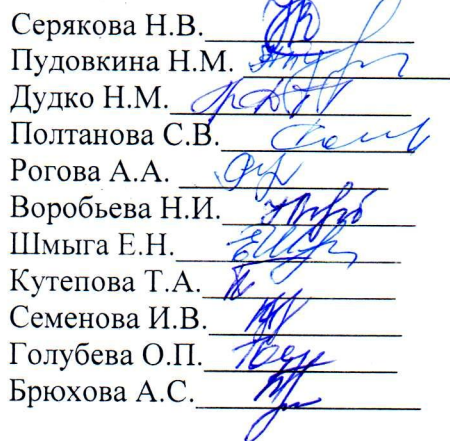 Серякова Н.В.
Пудовкина Н.М.
Дудко Н.М.
Полтанова С.В.
Рогова А.А.
Воробьева Н.И.
Шмыга Е.Н.
Кутепова Т.А.
Семенова И.В.
Голубева О.П.
Брюхова А.С.